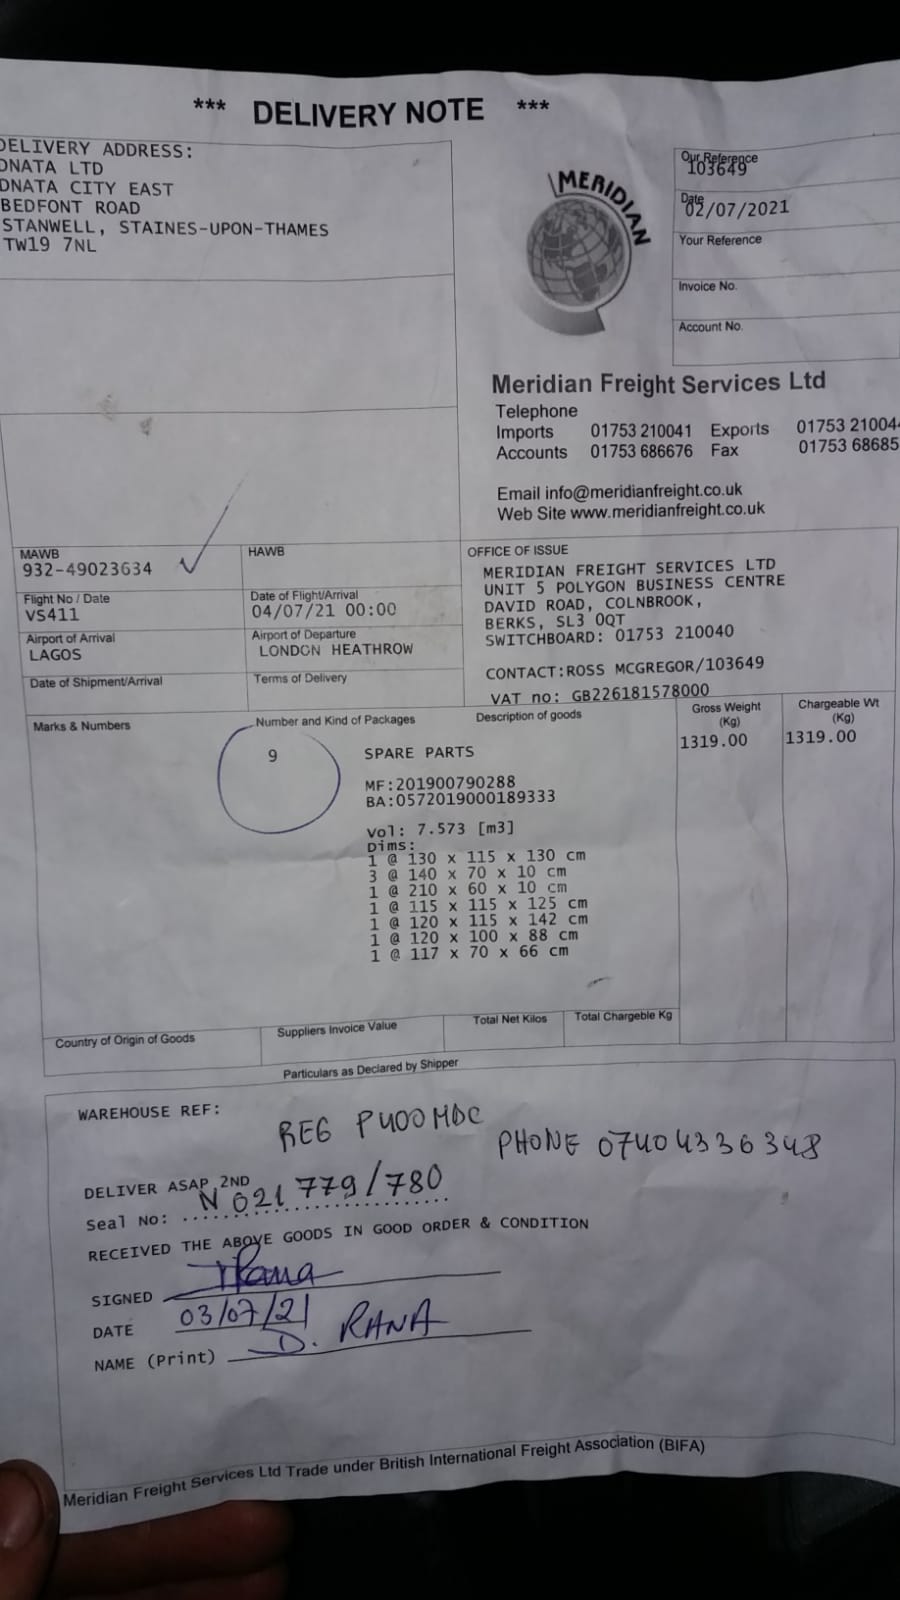 *** DELIVERY NOTE ***
DELIVERY ADDRESS:
DNATA LTD
DNATA CITY EAST
BEDFONT ROAD
STANWELL, STAINES-UPON-THAMES
TW19 7NL
MERIDIAN
Our Reference
103649
Date
02/07/2021
Your Reference
Invoice No.
Account No.
Meridian Freight Services Ltd
Telephone
Imports 01753 210041 Exports 01753 21004
Accounts 01753 686676 Fax 01753 68685
Email info@meridianfreight.co.uk
Web Site www.meridianfreight.co.uk
MAWB
932-49023634
HAWB
Flight No / Date
VS411
Date of Flight/Arrival
04/07/21 00:00
Airport of Arrival
LAGOS
Airport of Departure
LONDON HEATHROW
Date of Shipment/Arrival
Terms of Delivery
OFFICE OF ISSUE
MERIDIAN FREIGHT SERVICES LTD
UNIT 5 POLYGON BUSINESS CENTRE
DAVID ROAD, COLNBROOK,
BERKS, SL3 0QT
SWITCHBOARD: 01753 210040
CONTACT:ROSS MCGREGOR/103649
VAT no: GB226181578000
Marks & Numbers
Number and Kind of Packages
Description of goods
Gross Weight
(Kg)
Chargeable Wt
(Kg)
9 SPARE PARTS 1319.00 1319.00
MF:201900790288
BA:0572019000189333
Vol: 7.573 [m3]
Dims:
1 @ 130 x 115 x 130 cm
3 @ 140 x 70 x 10 cm
1 @ 210 x 60 x 10 cm
1 @ 115 x 115 x 125 cm
1 @ 120 x 115 x 142 cm
1 @ 120 x 100 x 88 cm
1 @ 117 x 70 x 66 cm
Country of Origin of Goods
Suppliers Invoice Value
Total Net Kilos
Total Chargeble Kg
Particulars as Declared by Shipper
WAREHOUSE REF:
REG P400MDC
PHONE 07404336348
DELIVER ASAP 2ND
Seal No: N 021 779/780
RECEIVED THE ABOVE GOODS IN GOOD ORDER & CONDITION
SIGNED
DATE 03/07/21
NAME (Print) D. RANA
Meridian Freight Services Ltd Trade under British International Freight Association (BIFA)